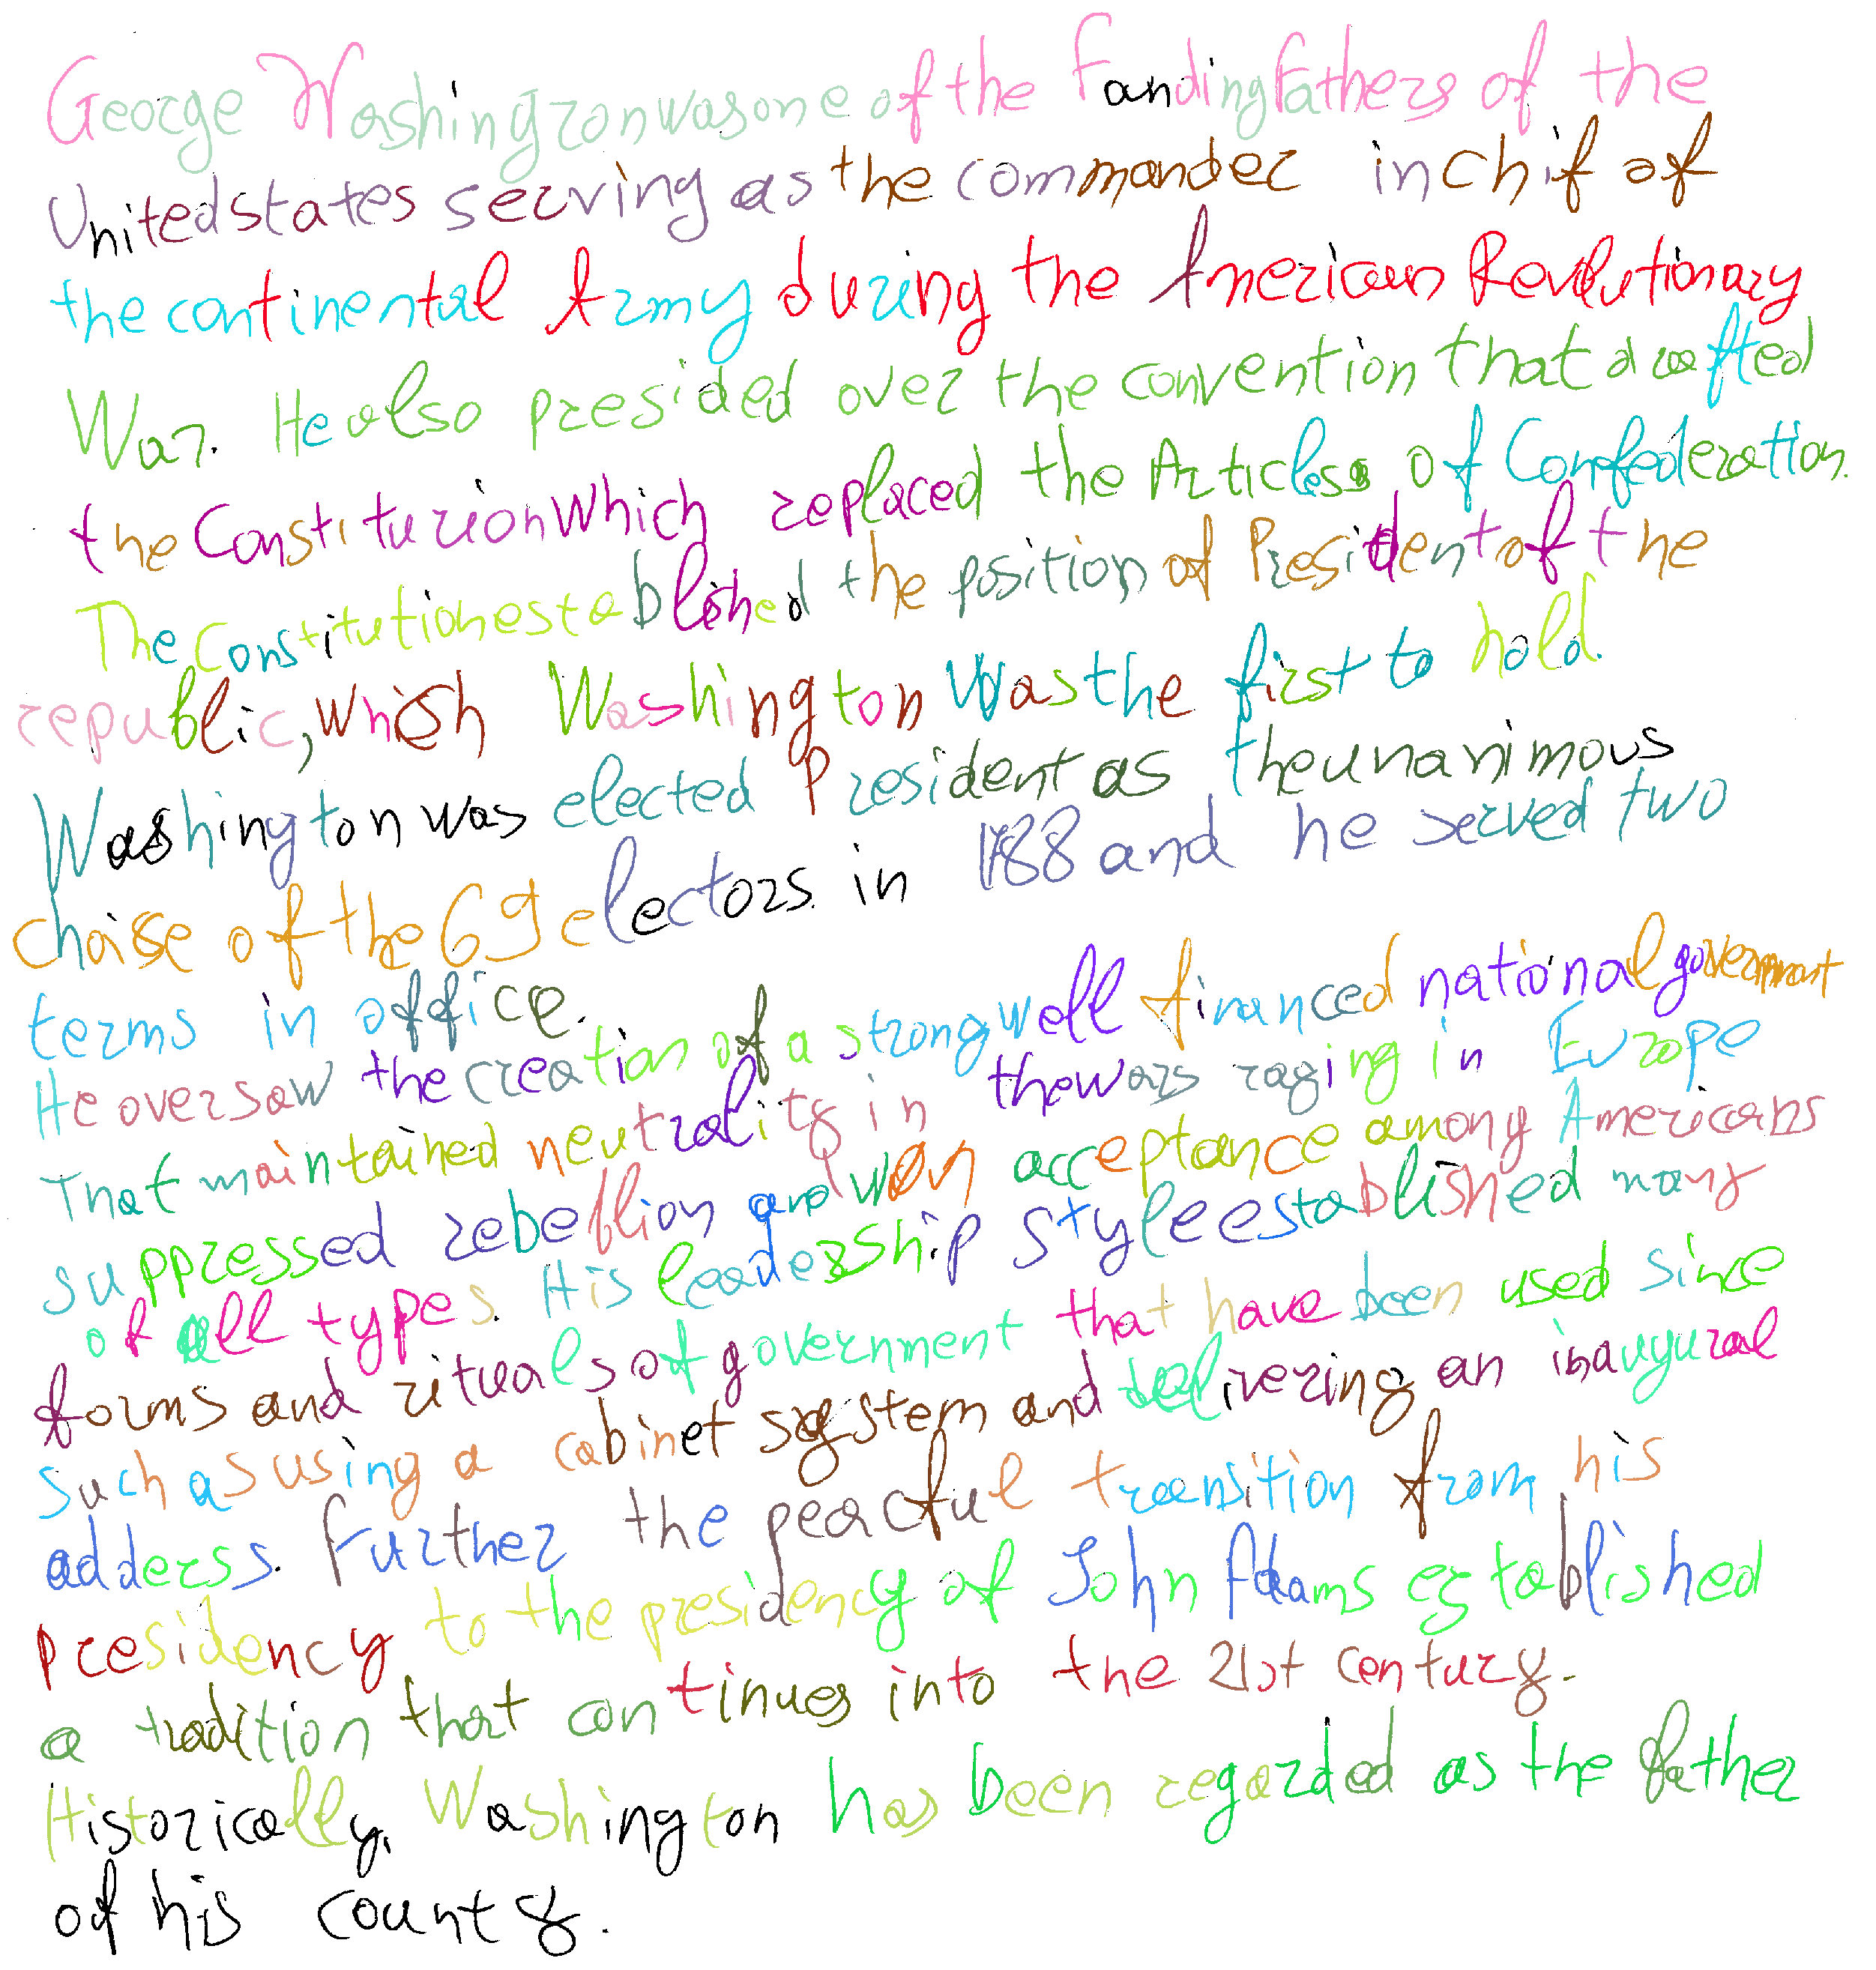 George Washingron was one of the Fanding Fathers of the
United states serving as the commander in Chif of
the continental Army during the American Revolutionary
War. He also presided over the convention that drafted
the Constiturion which replaced the Articles of Confederation.
The Constitution established the position of President of the
republic, which Washington Was the first to hold.
Washington was elected President as the unanimous
choise of the 69 electors in 1788 and he served two
terms in office.
He oversaw the creation of a strong well financed national government
That maintained neutrality in the wars raging in Europe
suppressed rebellion and won acceptance among Americans
of all types. His leadership style established many
forms and rituals of government that have been used since
such as using a cabinet system and delivering an inaugural
adderss. Further the peacful transition from his
presidency to the presidency of John Adams established
a tradition that continues into the 21st century.
Historically, Washington has been regarded as the father
of his county.